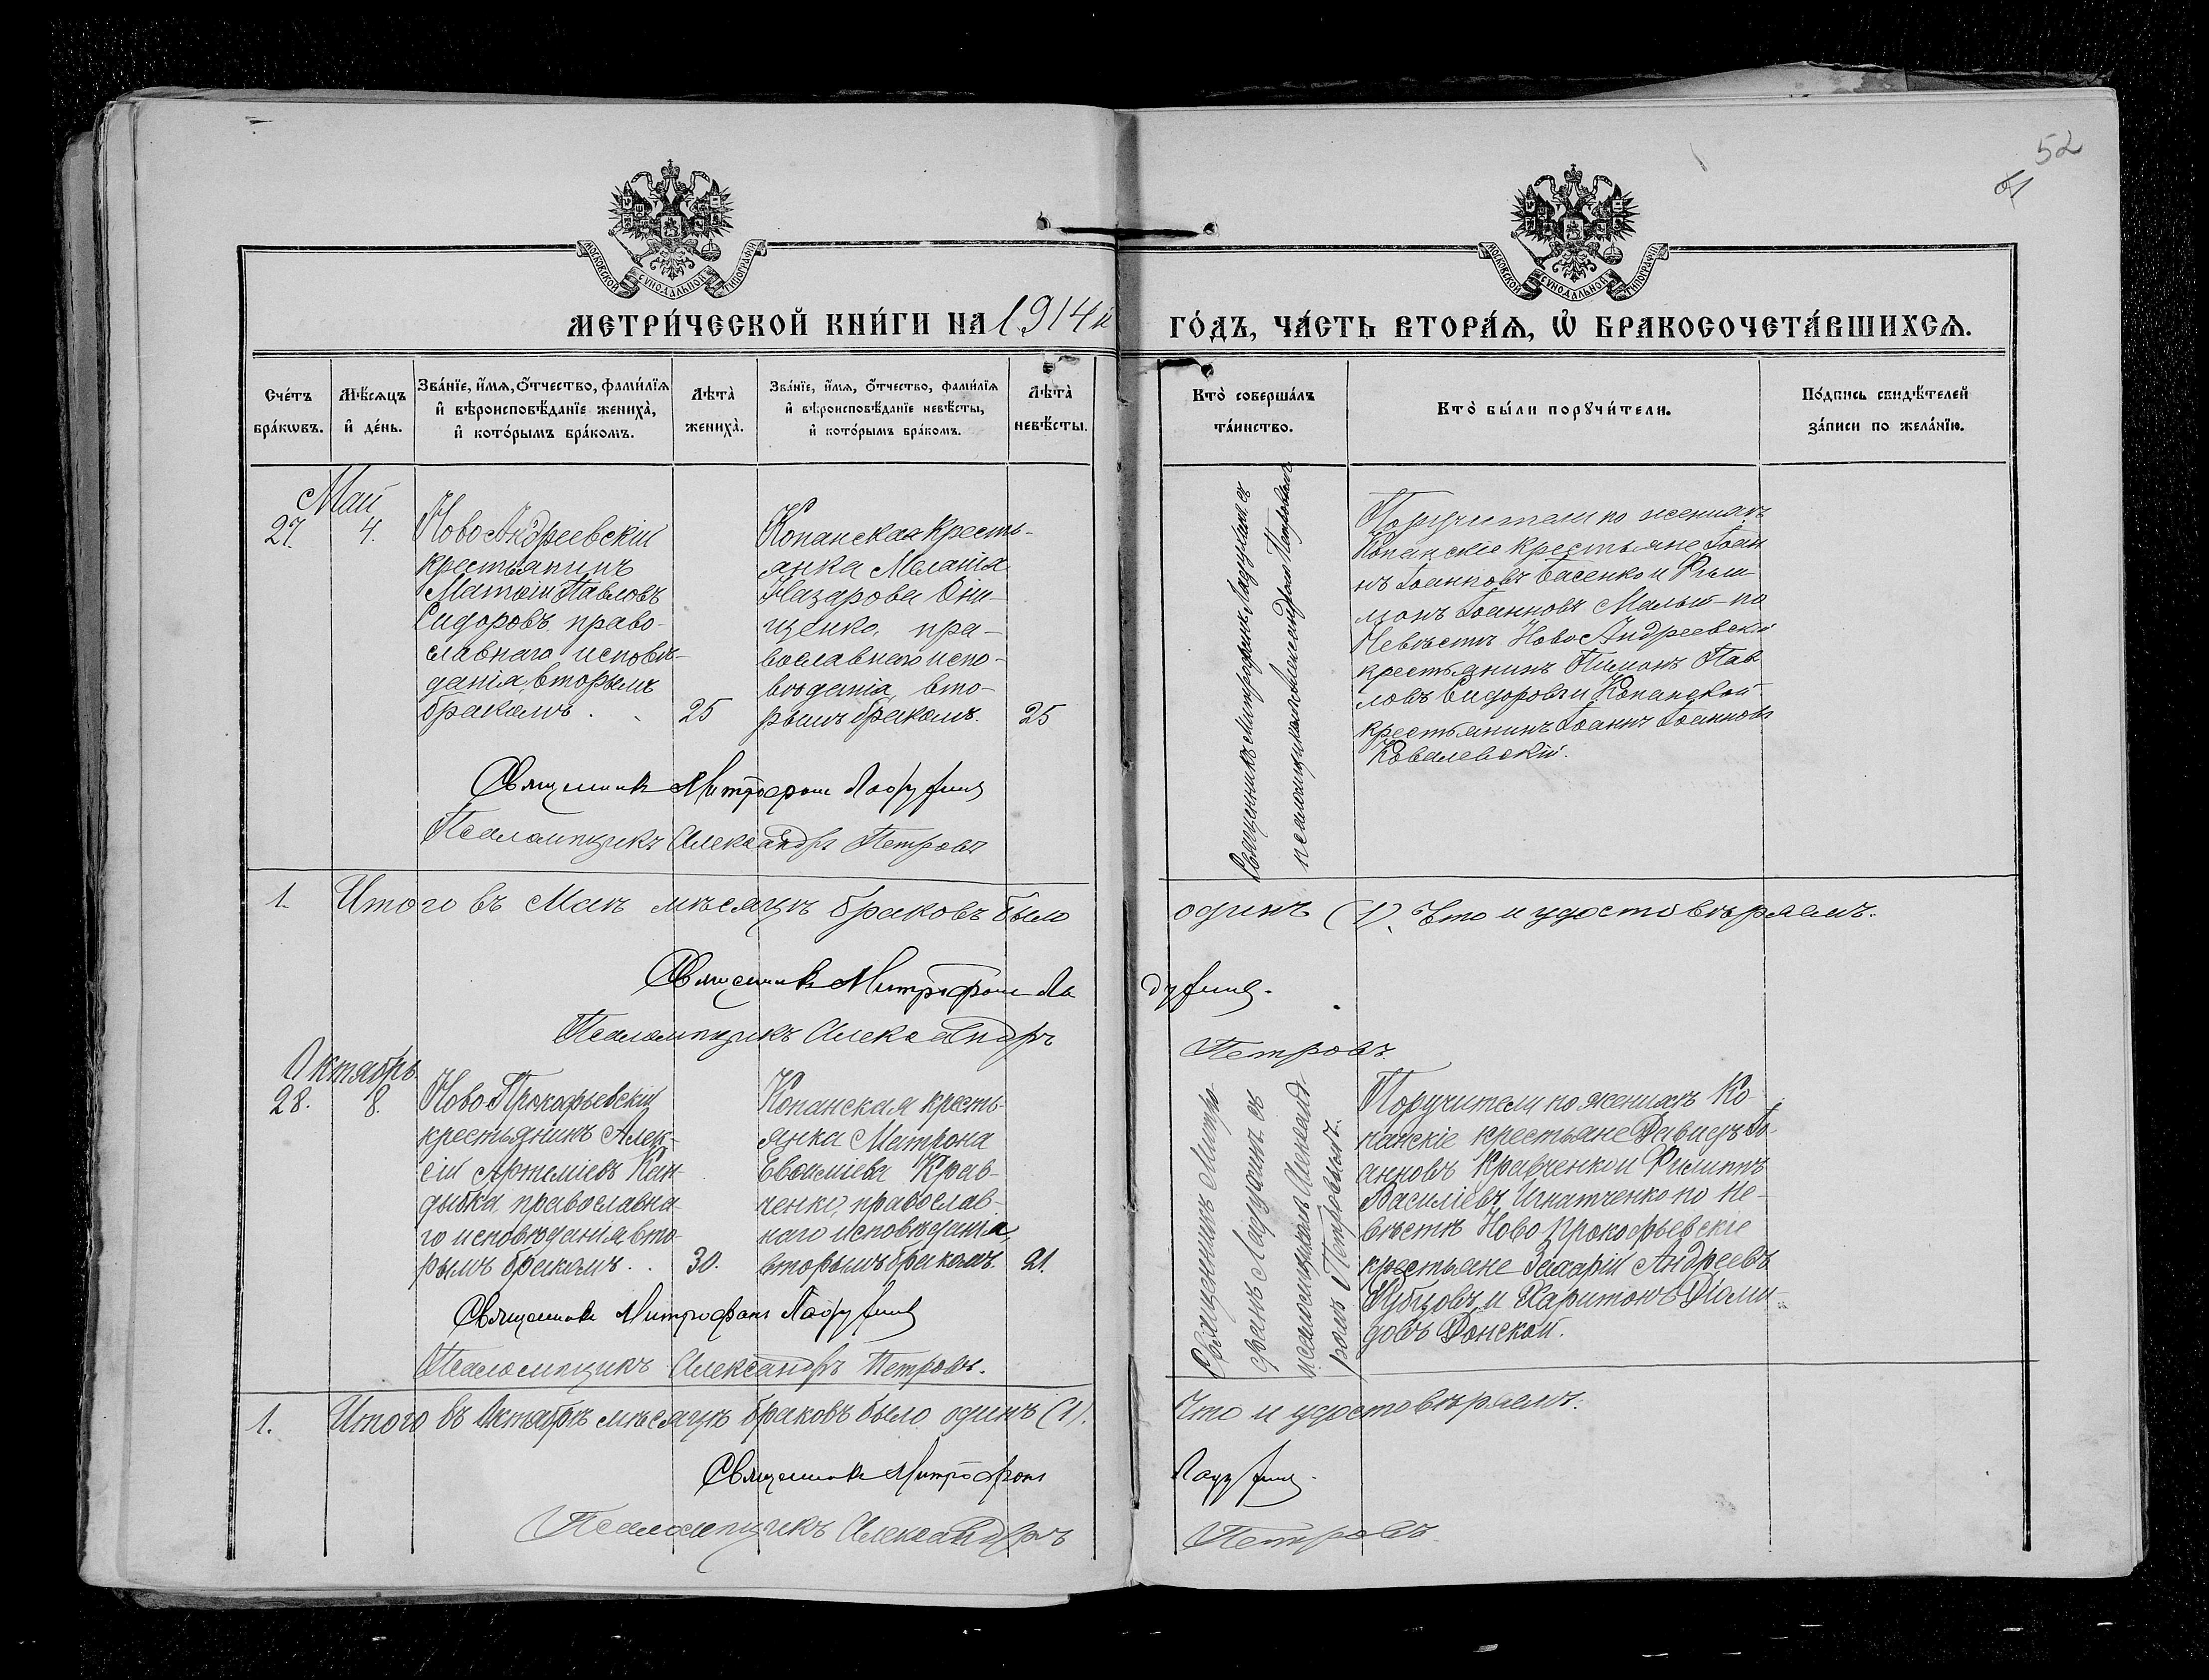 52
МОСКОВСКОЙ СѴНОДАЛЬНОЙ ТИПОГРАФІИ
МОСКОВСКОЙ СѴНОДАЛЬНОЙ ТИПОГРАФІИ
МЕТРИ́ЧЕСКОЙ КНИ́ГИ НА 1914й ГО́ДЪ, ЧА́СТЬ ВТОРА́Ѧ, Ѡ҆ БРАКОСОЧЕТА́ВШИХСѦ.
Сче́тъ
бра́кѡвъ.
Мѣ́сѧцъ
и҆ де́нь.
Зва́нїе, и҆́мѧ, ѻ҆́тчество, фами́лїѧ
и҆ вѣроисповѣ́данїе жениха̀,
и҆ кото́рымъ бра́комъ.
Лѣ̑та̀
жениха̀.
Зва́нїе, и҆́мѧ, ѻ҆́тчество, фами́лїѧ
и҆ вѣроисповѣ́данїе невѣ́сты,
и҆ кото́рымъ бра́комъ.
Лѣ̑та̀
невѣ́сты.
Кто̀ соверша́лъ
та́инство.
Кто̀ бы́ли порꙋчи́тели.
По́дпись свидѣ́телей
за́писи по жела́нїю.
Май
27. 4.
Ново Андреевскій
крестьянинъ
Матѳій Павловъ
Сидоровъ, право-
славнаго исповѣ-
данія, вторымъ
бракомъ. 25
Копанская кресть-
янка Меланія
Назарова Они-
щенко, пра-
вославнаго испо-
вѣданія, вто-
рымъ бракомъ. 25
Священникъ Митрофанъ Ладухинъ съ
псаломщикомъ Александромъ Петровымъ
Поручители по женихѣ
Копанскіе крестьяне Іоан
нъ Іоанновъ Басенко и Фили-
монъ Іоанновъ Малый - по
Невѣстѣ Ново Андреевскій
крестьянинъ Пимонъ Пав
ловъ Сидоровъ и Копанской
крестьянинъ Іоаннъ Іоанновъ
Ковалевскій.
Священникъ Митрофанъ Ладухинъ
Псаломщикъ Александръ Петровъ
1. Итого въ Маѣ мѣсяцѣ браковъ было одинъ (1). Что и удостовѣряемъ.
Священникъ Митрофанъ Ладухинъ.
Псаломщикъ Александръ Петровъ.
Октябрь.
28. 8.
Ново Прокофьевскій
крестьянинъ Алек-
сій Артеміевъ Кан
дыбка, православна-
го исповѣданія вто-
рымъ бракомъ. 30.
Копанская кресть-
янка Матрона
Евфиміева Крав-
ченко, православ-
наго исповѣданія,
вторымъ бракомъ. 21.
Священникъ Митро-
фанъ Ладухинъ съ
псаломщикомъ Александ-
ромъ Петровымъ.
Поручители по женихѣ Ко-
панскіе крестьяне Давидъ Іо-
анновъ Кравченко и Филиппъ
Василіевъ Игнатченко по не-
вѣстѣ Ново Прокофьевскіе
крестьяне Захарій Андреевъ
Рубцовъ и Харитонъ Діоми-
довъ Донской.
Священникъ Митрофанъ Ладухинъ
Псаломщикъ Александръ Петровъ.
1. Итого въ Октябрѣ мѣсяцѣ браковъ было одинъ (1). Что и удостовѣряемъ.
Священникъ Митрофанъ Ладухинъ.
Псаломщикъ Александръ Петровъ